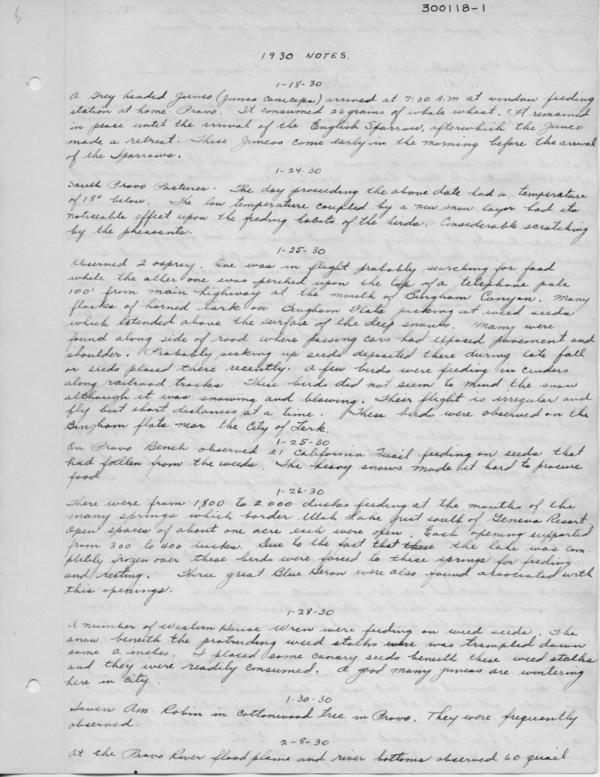 300118-1
1930 NOTES.
1-18-30
A Grey headed Junco (Junco Caniceps) arrived at 7:30 A.M at window feeding
station at home Provo. It consumed 26 grains of whole wheat. It remained
in peace until the arrival of the English Sparrow, after which the Junco
made a retreat. These Juncos come early in the morning before the arrival
of the Sparrows.
1-24-30
South Provo Pastures. The day preceeding the above date had a temperature
of 18° below. The low temperature coupled by a new snow layer had its
noticeable effect upon the feeding habits of the birds. Considerable scratching
by the pheasants.
1-25-30
Observed 2 osprey. One was in flight probably searching for food
while the other one was perched upon the top of a telephone pole
100' from main highway at the mouth of Bingham Canyon. Many
flocks of horned lark on Bingham Flats picking at weed seeds
which extended above the surface of the deep snows. Many were
found along side of road where passing cars had exposed pavement and
shoulder. Probably picking up seeds deposited there during late fall
or seeds placed there recently. A few birds were feeding in cinders
along railroad tracks These birds did not seem to mind the snow
although it was snowing and blowing. Their flight is irregular and
fly but short distances at a time. These birds were observed on the
Bingham flats near the City of Lark.
1-25-30
On Provo Bench observed 21 California Quail feeding on seeds that
had fallen from the weeds. The heavy snows made it hard to procure
food
1-26-30
There were from 1,800 to 2,000 ducks feeding at the mouths of the
many springs which border Utah Lake just south of Geneva Resort.
Open spaces of about one acre each were open. Each opening supported
from 300 to 400 ducks. Due to the fact that the lake was com-
pletely frozen over these birds were forced to these springs for feeding
and resting. Three great Blue Heron were also found associated with
this openings.
1-28-30
A number of Western House Wren were feeding on weed seeds. The
snow beneith the protruding weed stalks was trampled down
some 2 inches. I placed some canary seeds beneith these weed stalks
and they were readily consumed. A good many juncos are wintering
here in city.
1-30-30
Seven Am. Robin in Cottonwood Tree in Provo. They were frequently
observed.
2-8-30
At the Provo River flood plains and river bottoms observed 60 quail